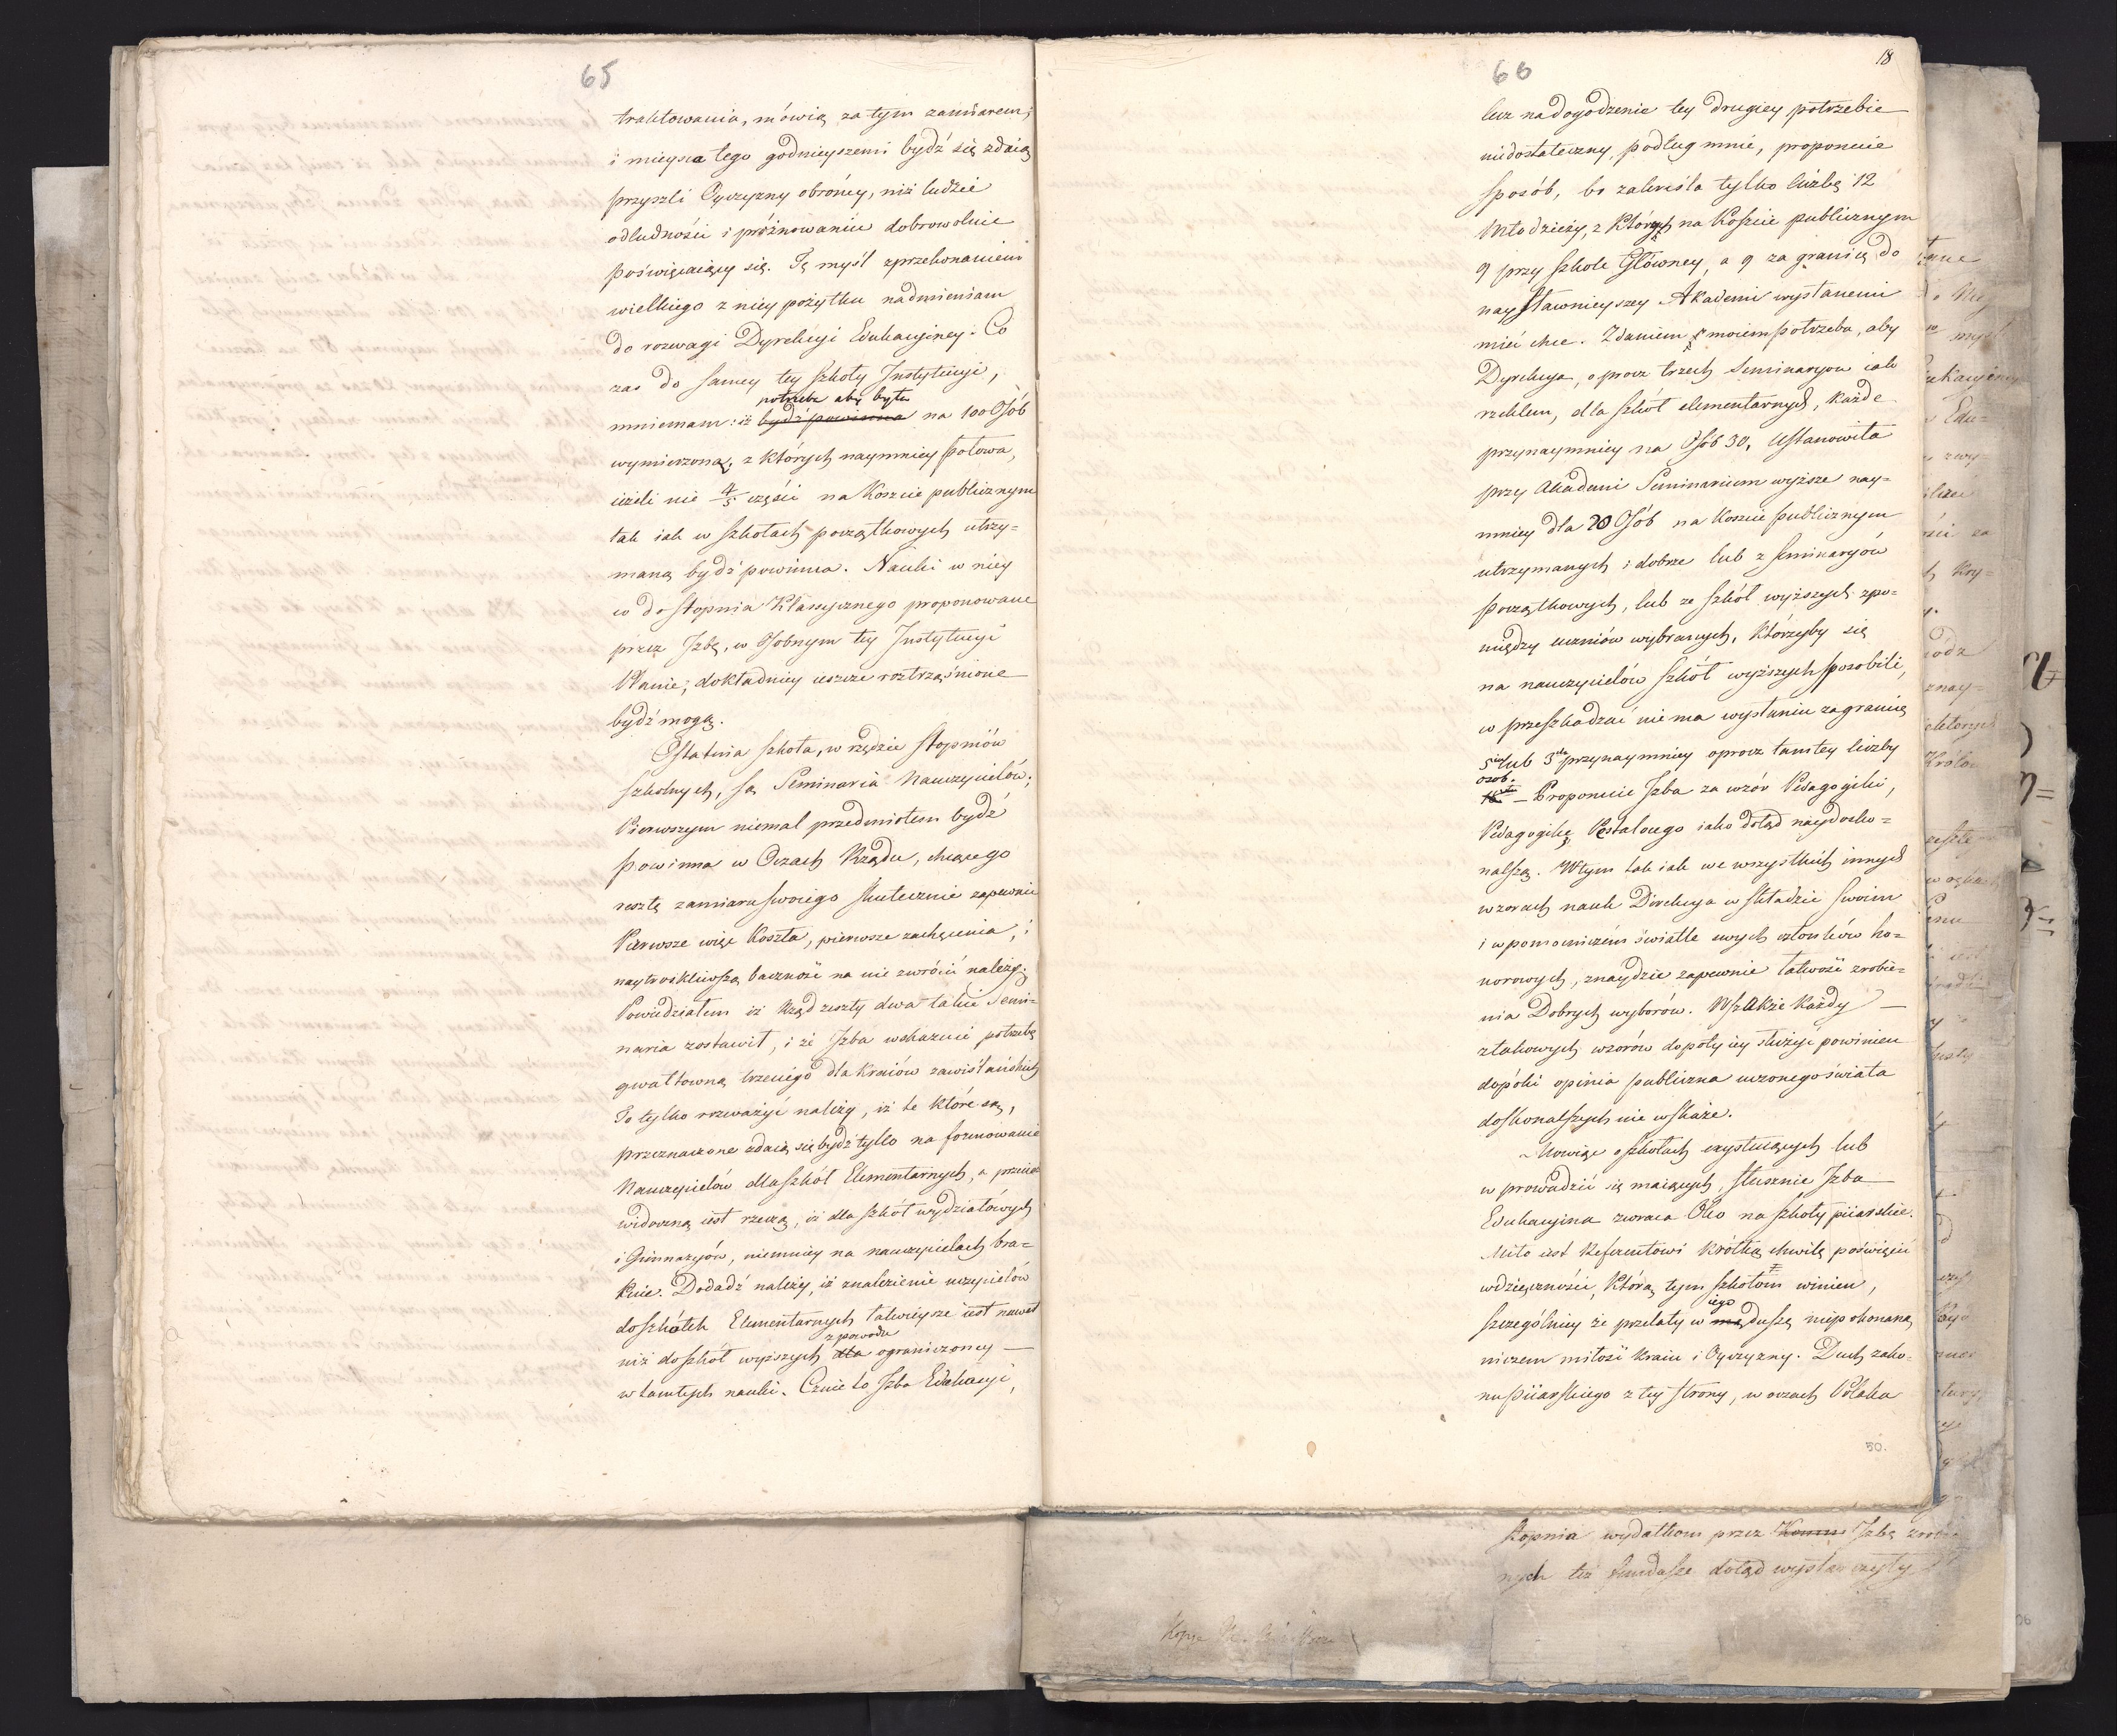 65
traktowania, mówią za tym zamiarem;
i mieysca tego godnieyszemi bydź się zdaią
przyszli Oyczyzny obrońcy, niż ludzie
odludności i próżnowaniu dobrowolnie
poświęcaiący się. Tę myśl z przekonaniem
wielkiego z niey pożytku nadmieniam
do rozwagi Dyrekcyi Edukacyiney. Co
zas do samey tey szkoły Instytucyi,
potrzeba aby była
mniemam: iż bydź powinna na 100 Osób
wymierzoną, z których naymniey połowa,
ieżeli nie 4/5 części na Koszcie publicznym
tak iak w szkołach początkowych utrzy=
maną bydź powinna. Nauki w niey
co do stopnia Klassycznego proponowane
przez Izbę, w Osobnym tey Instytucyi
Planie; dokładniey ieszcze roztrząśnione
bydź mogą.
Ostatnia szkoła, w rzędzie stopniów
szkolnych, są Seminaria Nauczycielów;
Pierwszym niemal przedmiotem bydź
powinna w Oczach Rządu, chcącego
resztę zamiaru swoiego skutecznie zapewnić
Pierwsze więc Koszta, pierwsze zachęcenia, i
naytroskliwszą baczność na nie zwrócić należy.
Powiedziałem iż Rząd zeszły dwa takie Semi=
naria zostawił, i że Izba wskazuie potrzebę
gwałtowną trzeciego dla Kraiów zawiślańskich
To tylko rozważyć należy, iż te które są,
przeznaczone zdaią się bydź tylko na formowanie
Nauczycielów dla szkół Elementarnych, a przecież
widoczną iest rzeczą, iż dla szkół wydziałowych
i Gimnazyów, niemniey na nauczycielach bra=
knie. Dodadź należy, iż znalezienie uczycielów
do szkółek Elementarnych łatwieysze iest nawet
z powodu
niż do szkół wyższych dla ograniczoney —
w tamtych nauki. Czuie to Izba Edukacyi,
66
18
lecz na dogodzenie tey drugiey potrzebie
niedostateczny, podług mnie, proponuie
sposób, bo zakreśla tylko liczbę 12
Młodzieży, z Których na Koszcie publicznym
9 przy szkole Główney, a 9 za granicą do
naysławnieyszey Akademi wysłanemi
mieć chce. Zdaniem moiem potrzeba, aby
Dyrekcya, oprocz trzech Seminaryow iak
rzekłem, dla szkół elementarnych, każde
przynaymniey na Osób 30, Ustanowiła
przy Akademi Seminarium wyższe nay=
mniey dla 20 Osób na Koszcie publicznym
utrzymanych i dobrze lub z seminaryów
początkowych, lub ze szkół wyższych zpo=
między uczniów wybranych, którzyby się
na nauczycielów szkół wyższych sposobili,
w przeszkadzać nie ma wysłaniu zagranicę
lub przynaymniey oprocz tamtey liczby
osob.
— Proponuie Izba za wzór Pedagogiki,
Pedagogikę Pestalocego iako dotąd naydosko=
nalszą. W tym tak iak we wszystkich innych
wzorach nauk Direkcya w składzie swoim
i w pomocniczém świetle swych członków ho=
norowych, znaydzie zapewnie łatwość zrobie=
nia Dobrych wyborów. Wszakże Każdy —
z takowych wzorów dopóty iey służyć powinien
dopóki opinia publiczna uczonego świata
doskonalszych nie wskaże.
Mowiąc o szkołach exystuiących lub
w prowadzić się maiących, słusznie Izba
Edukacyina zwraca Oko na szkoły piiarskie.
Miło iest Referentowi krótką chwilę poświęcić
wdzięczności, którą tym szkołom winien,
iego
szczególniey że przelały w mą duszę niepokonaną
niczem miłość kraiu i Oyczyzny. Duch zako=
nu Piiarskiego z tey strony, w oczach Polaka
50.
stopnia wydatkom przez Izbę
nych też fundusze dotąd wystarczyły